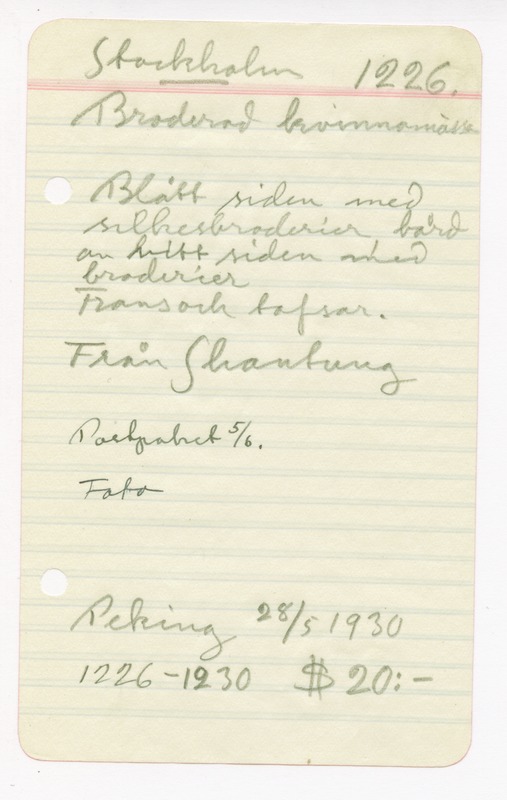 Stockholm 1226.
Broderad kvinnomössa
Blått siden med
silkesbroderier bård
av vitt siden med
broderier
Frans och tofsar.
Från Shantung
Postpaket 5/6.
Foto
Peking 28/5 1930
1226-1230 $ 20:-